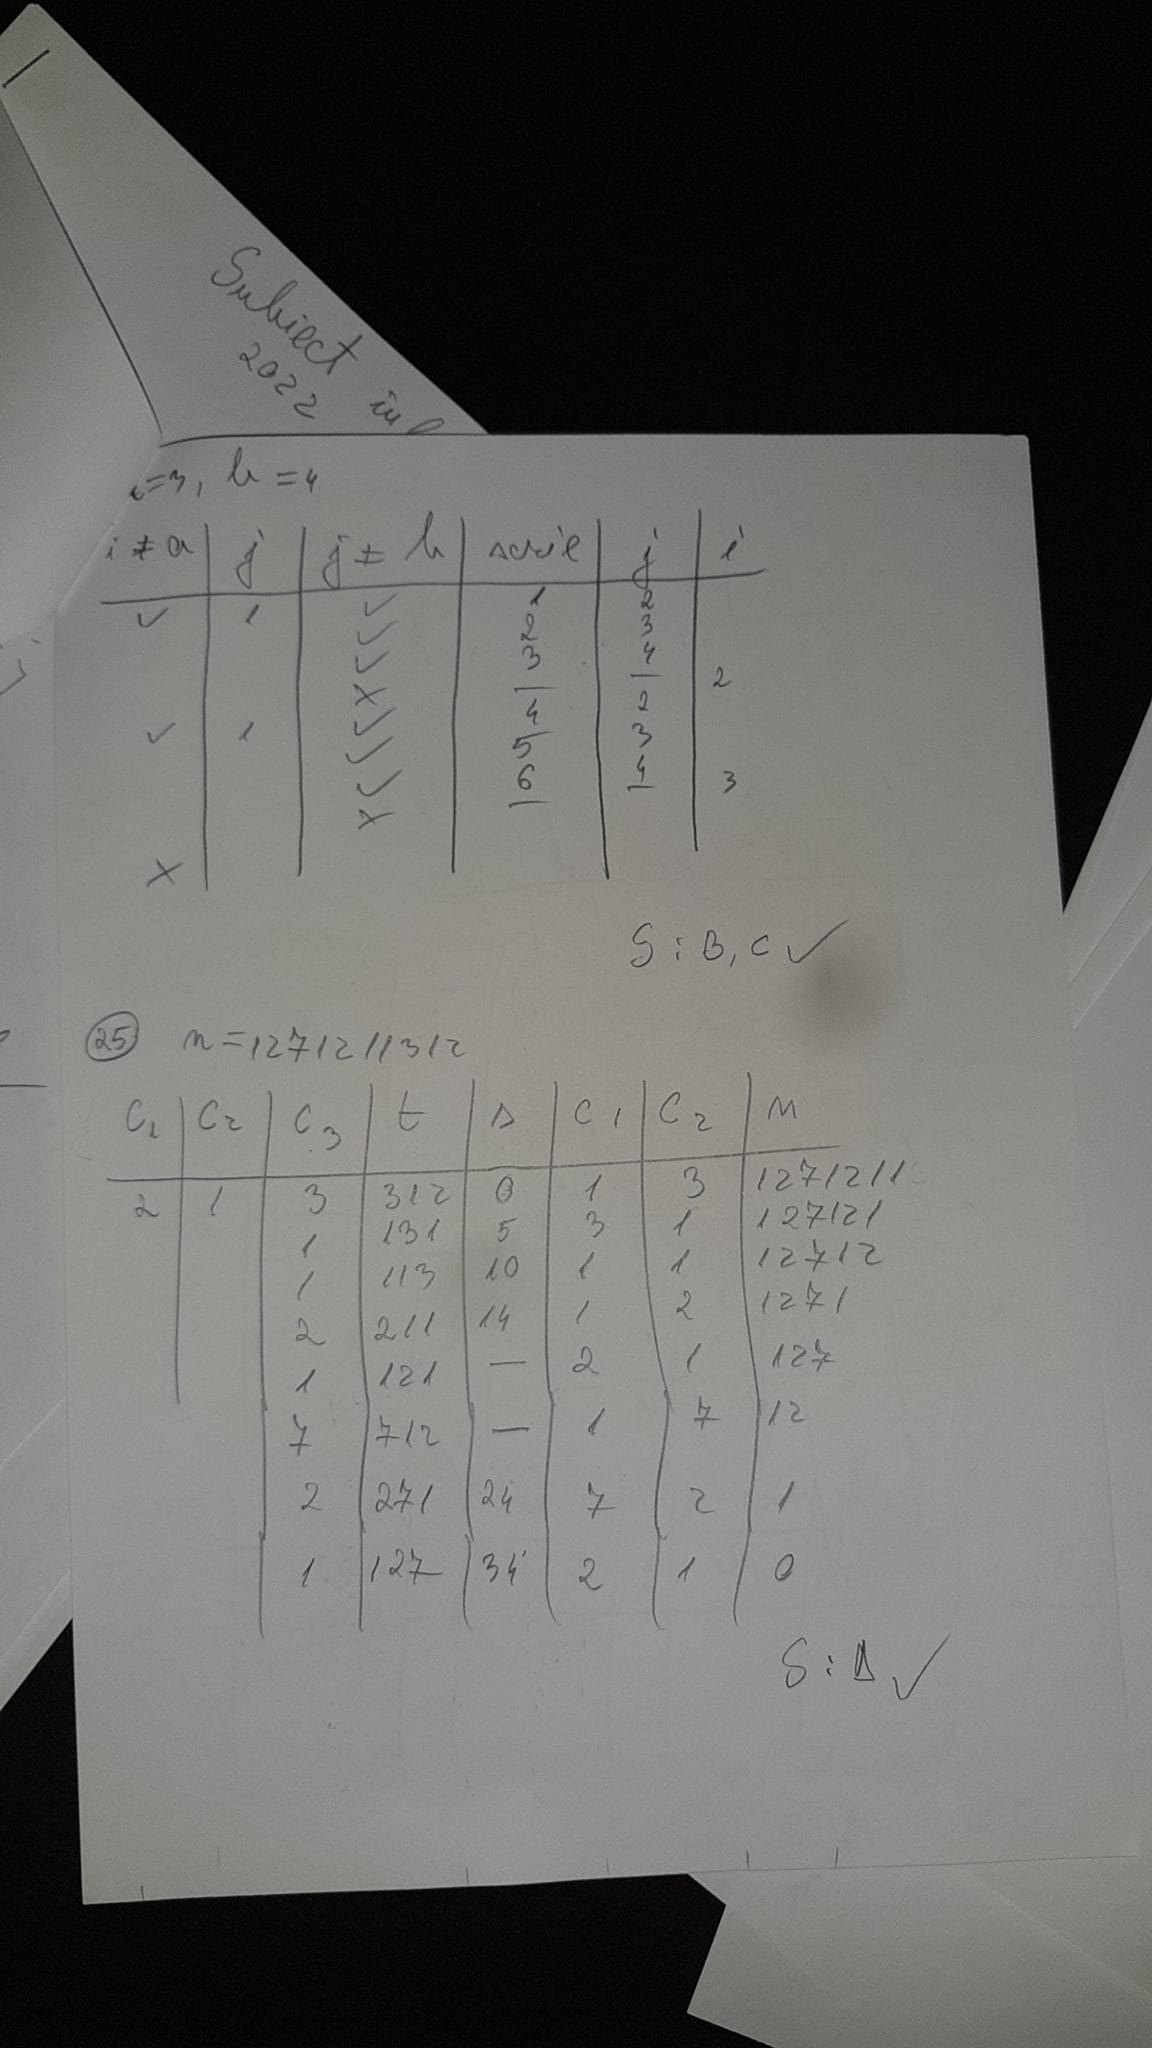 Subiect
2022
=3, b=4
i ≠ a j j ≠ b scrie j i
✓ 1 ✓ 1 2
✓ 2 3
✓ 3 4
x | | 2
✓ 1 ✓ 4 2
✓ 5 3
✓ 6 4 3
x
x
S: B, C ✓
25 n=1271211312
C1 C2 C3 t s C1 C2 n
2 1 3 312 0 1 3 1271211
1 131 5 3 1 127121
1 113 10 1 1 12712
2 211 14 1 2 1271
1 121 — 2 1 127
7 712 — 1 7 12
2 271 24 7 2 1
1 127 34 2 1 0
S: ✓